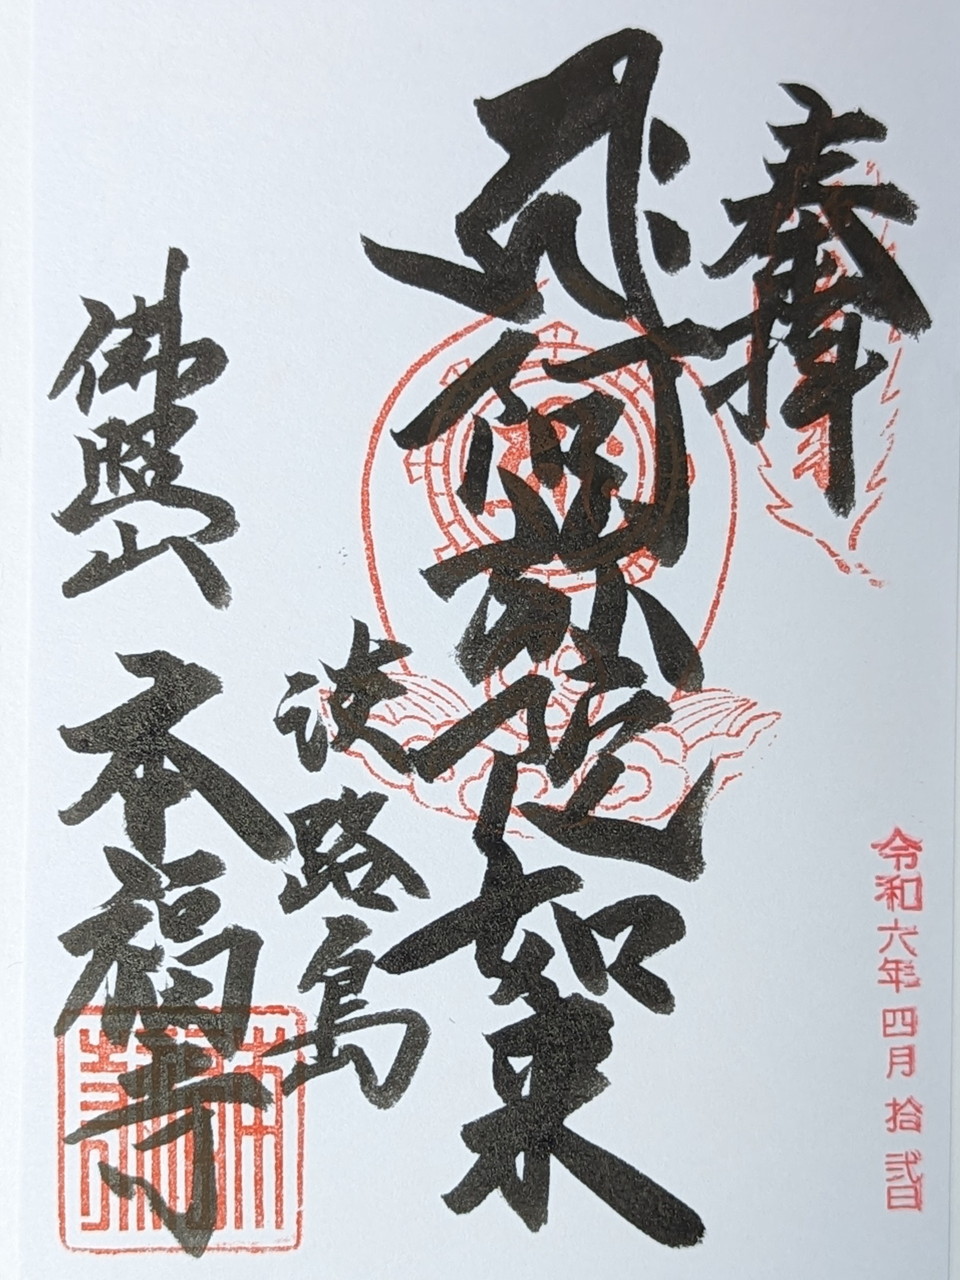 奉拝
令和六年四月拾弐日
阿弥陀如来
淡路島
佛照山
本福寺
本福寺